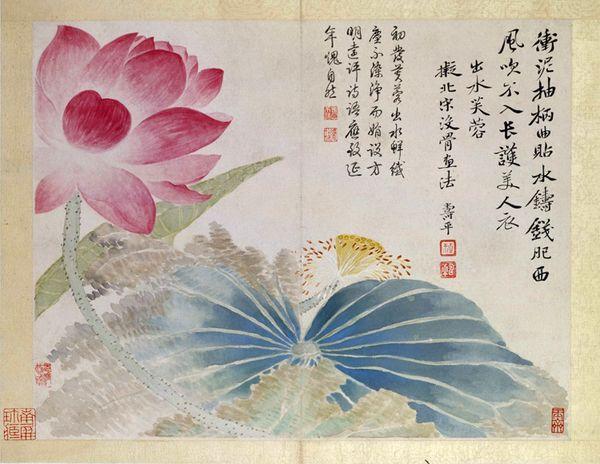 衝泥抽柄曲貼水鑄錢肥西
風吹不入长護美人衣
出水芙蓉
擬北宋没骨画法 壽平
初發芙蓉出水鮮纖
塵不淨而娟設方
明遠評诗語應延
年愧自然